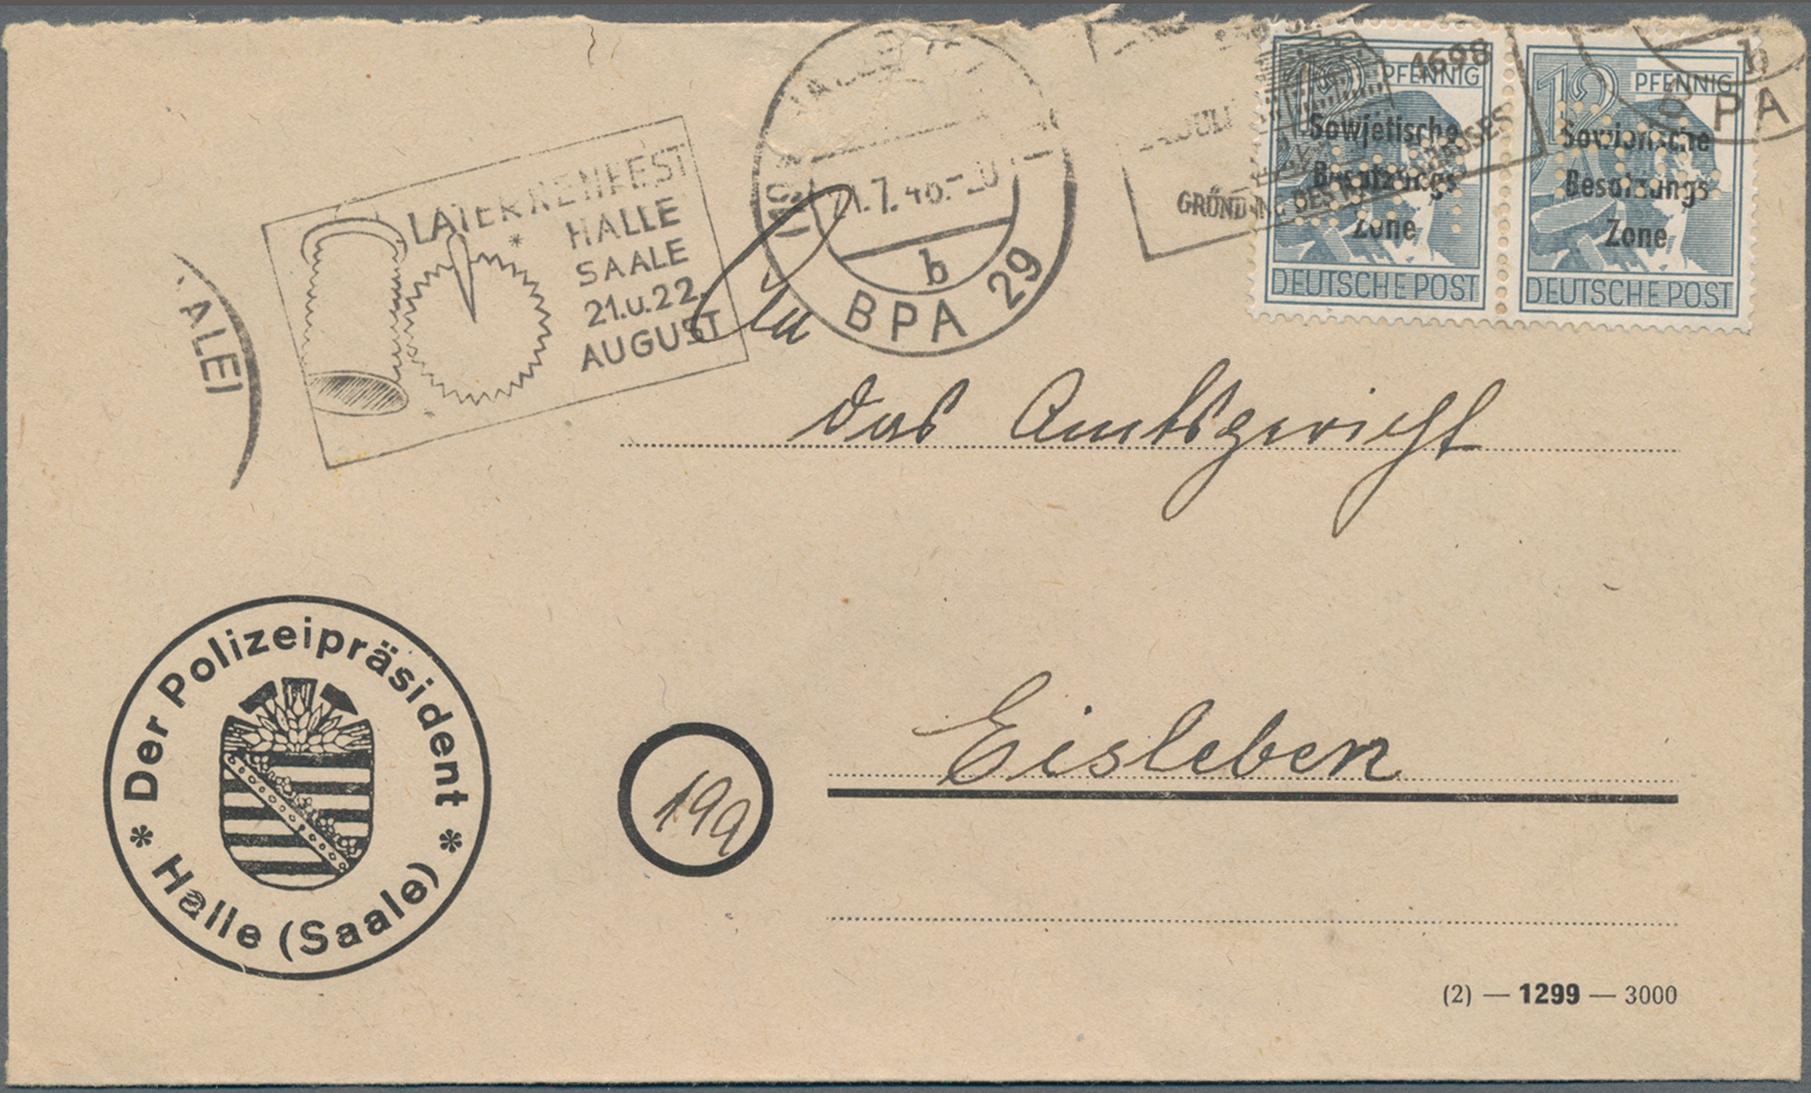 LATERNENFEST
HALLE
SAALE
21.u.22.
AUGUST
b
BPA 29
1698
GRÜNDUNG DES
12 PFENNIG
Sowjetische
Besatzungs
Zone
DEUTSCHE POST
12 PFENNIG
Sowjetische
Besatzungs
Zone
DEUTSCHE POST
b
PA
ALEI
An
das Amtsgericht
Eisleben
Der Polizeipräsident
* Halle (Saale) *
199
(2) — 1299 — 3000